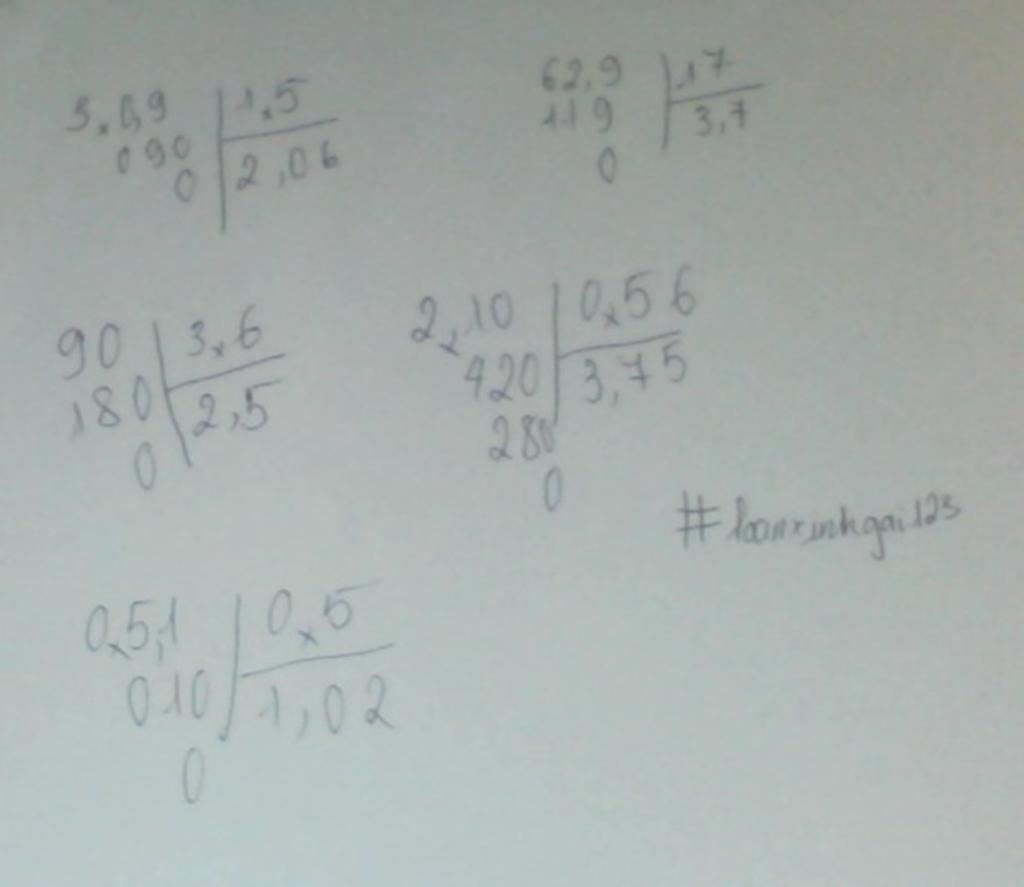 3,0,9 1,5
090 2,06
0
62,9 17
119 3,7
0
90 3,6
180 2,5
0
2,10 0,56
420 3,75
280
0
#loanxinhgai123
0,5,1 0,5
010 1,02
0